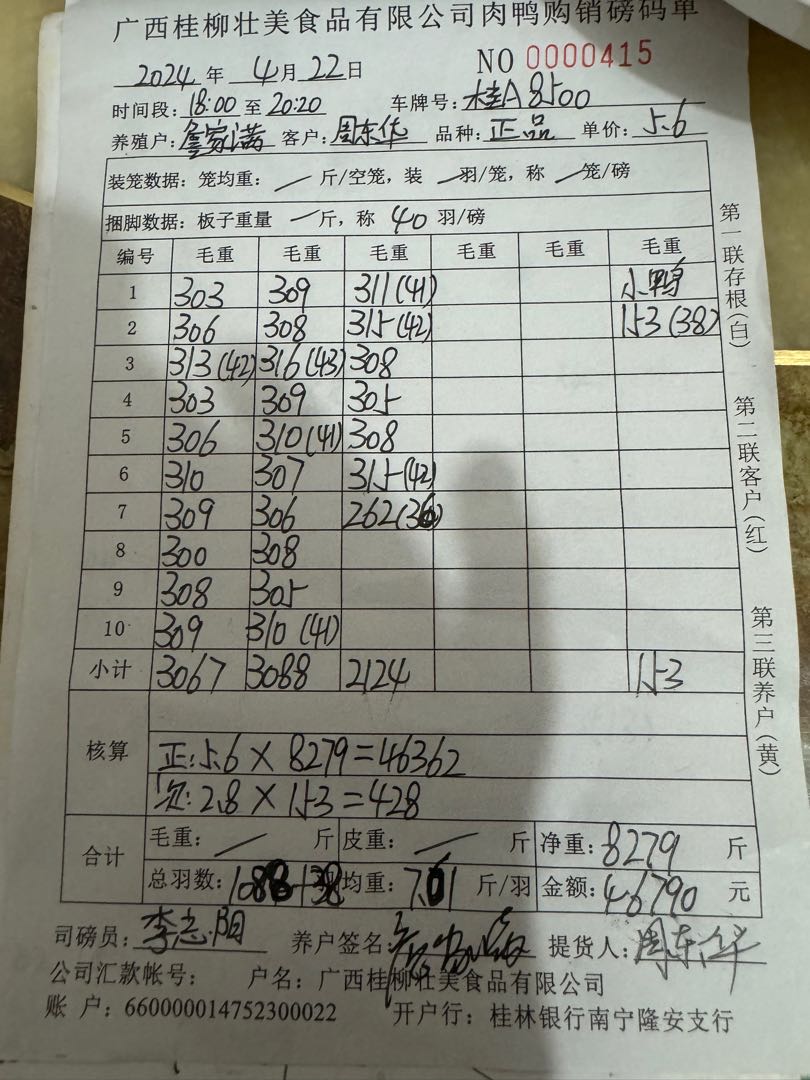 广西桂柳壮美食品有限公司肉鸭购销磅码单
2024 年 4月 22日 NO 0000415
时间段: 18:00 至 20:20 车牌号: 桂A8500
养殖户: 詹家满 客户: 周东华 品种: 正品 单价: 5.6
装笼数据: 笼均重: / 斤/空笼, 装 / 羽/笼, 称 / 笼/磅
捆脚数据: 板子重量 / 斤, 称 40 羽/磅
编号 毛重 毛重 毛重 毛重 毛重 毛重
1 303 309 311(41) 小鸭
2 306 308 315(42) 153(38)
3 313(42) 316(43) 308
4 303 309 305
5 306 310(41) 308
6 310 307 315(42)
7 309 306 262(36)
8 300 308
9 308 305
10 309 310(41)
小计 3067 3088 2124 153
核算
正: 5.6 × 8279 = 46362
次: 2.8 × 153 = 428
合计
毛重: / 斤 皮重: / 斤 净重: 8279 斤
总羽数: 均重: 7.01 斤/羽 金额: 46790 元
司磅员: 李志阳 养户签名: 提货人: 周东华
公司汇款帐号: 户名: 广西桂柳壮美食品有限公司
账 户: 660000014752300022 开户行: 桂林银行南宁隆安支行
第一联存根(白)
第二联客户(红)
第三联养户(黄)